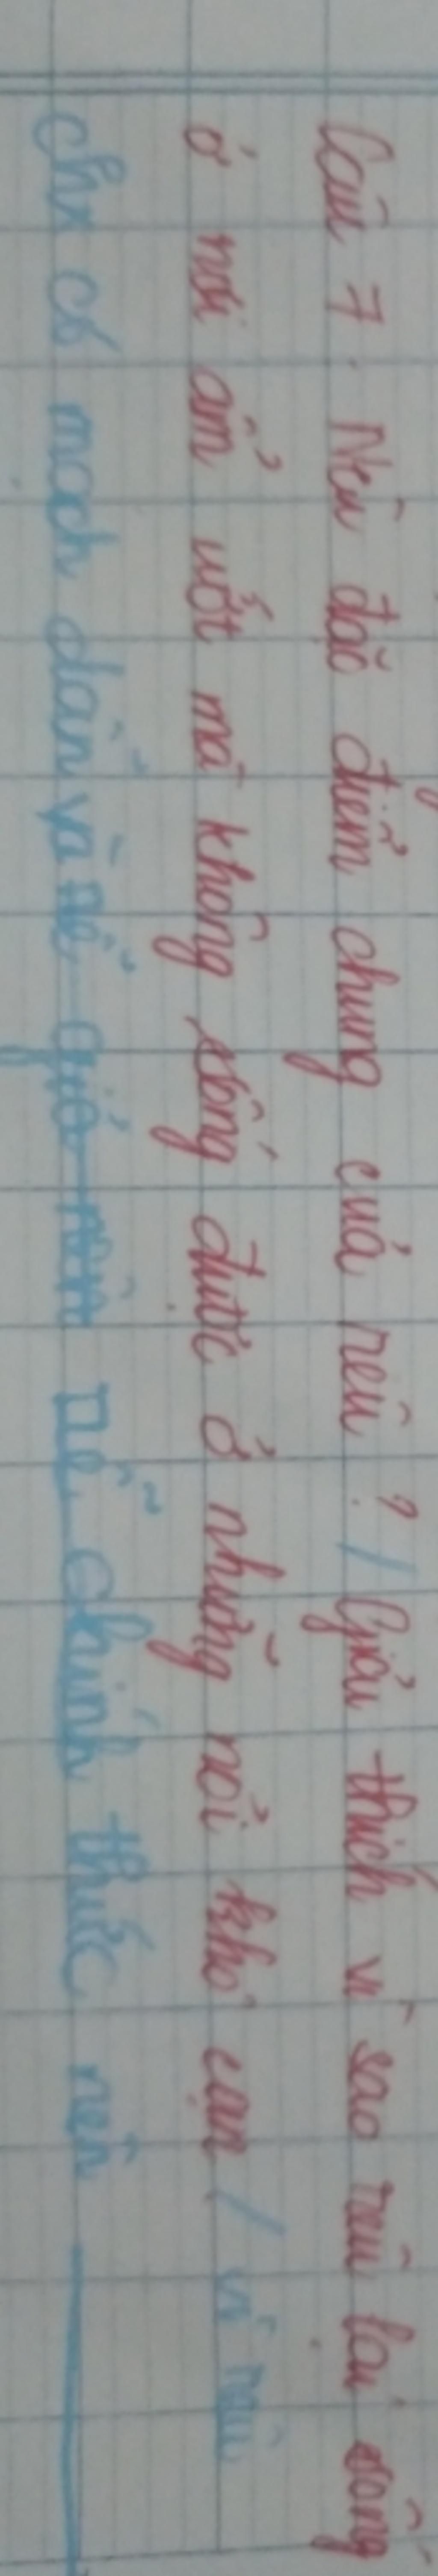 Câu 7. Nêu đặc điểm chung của rêu? / Giải thích vì sao rêu lại sống
ở nơi ẩm ướt mà không sống được ở những nơi khô cạn / vì rêu
chx có mạch dẫn và rễ chính thức nên